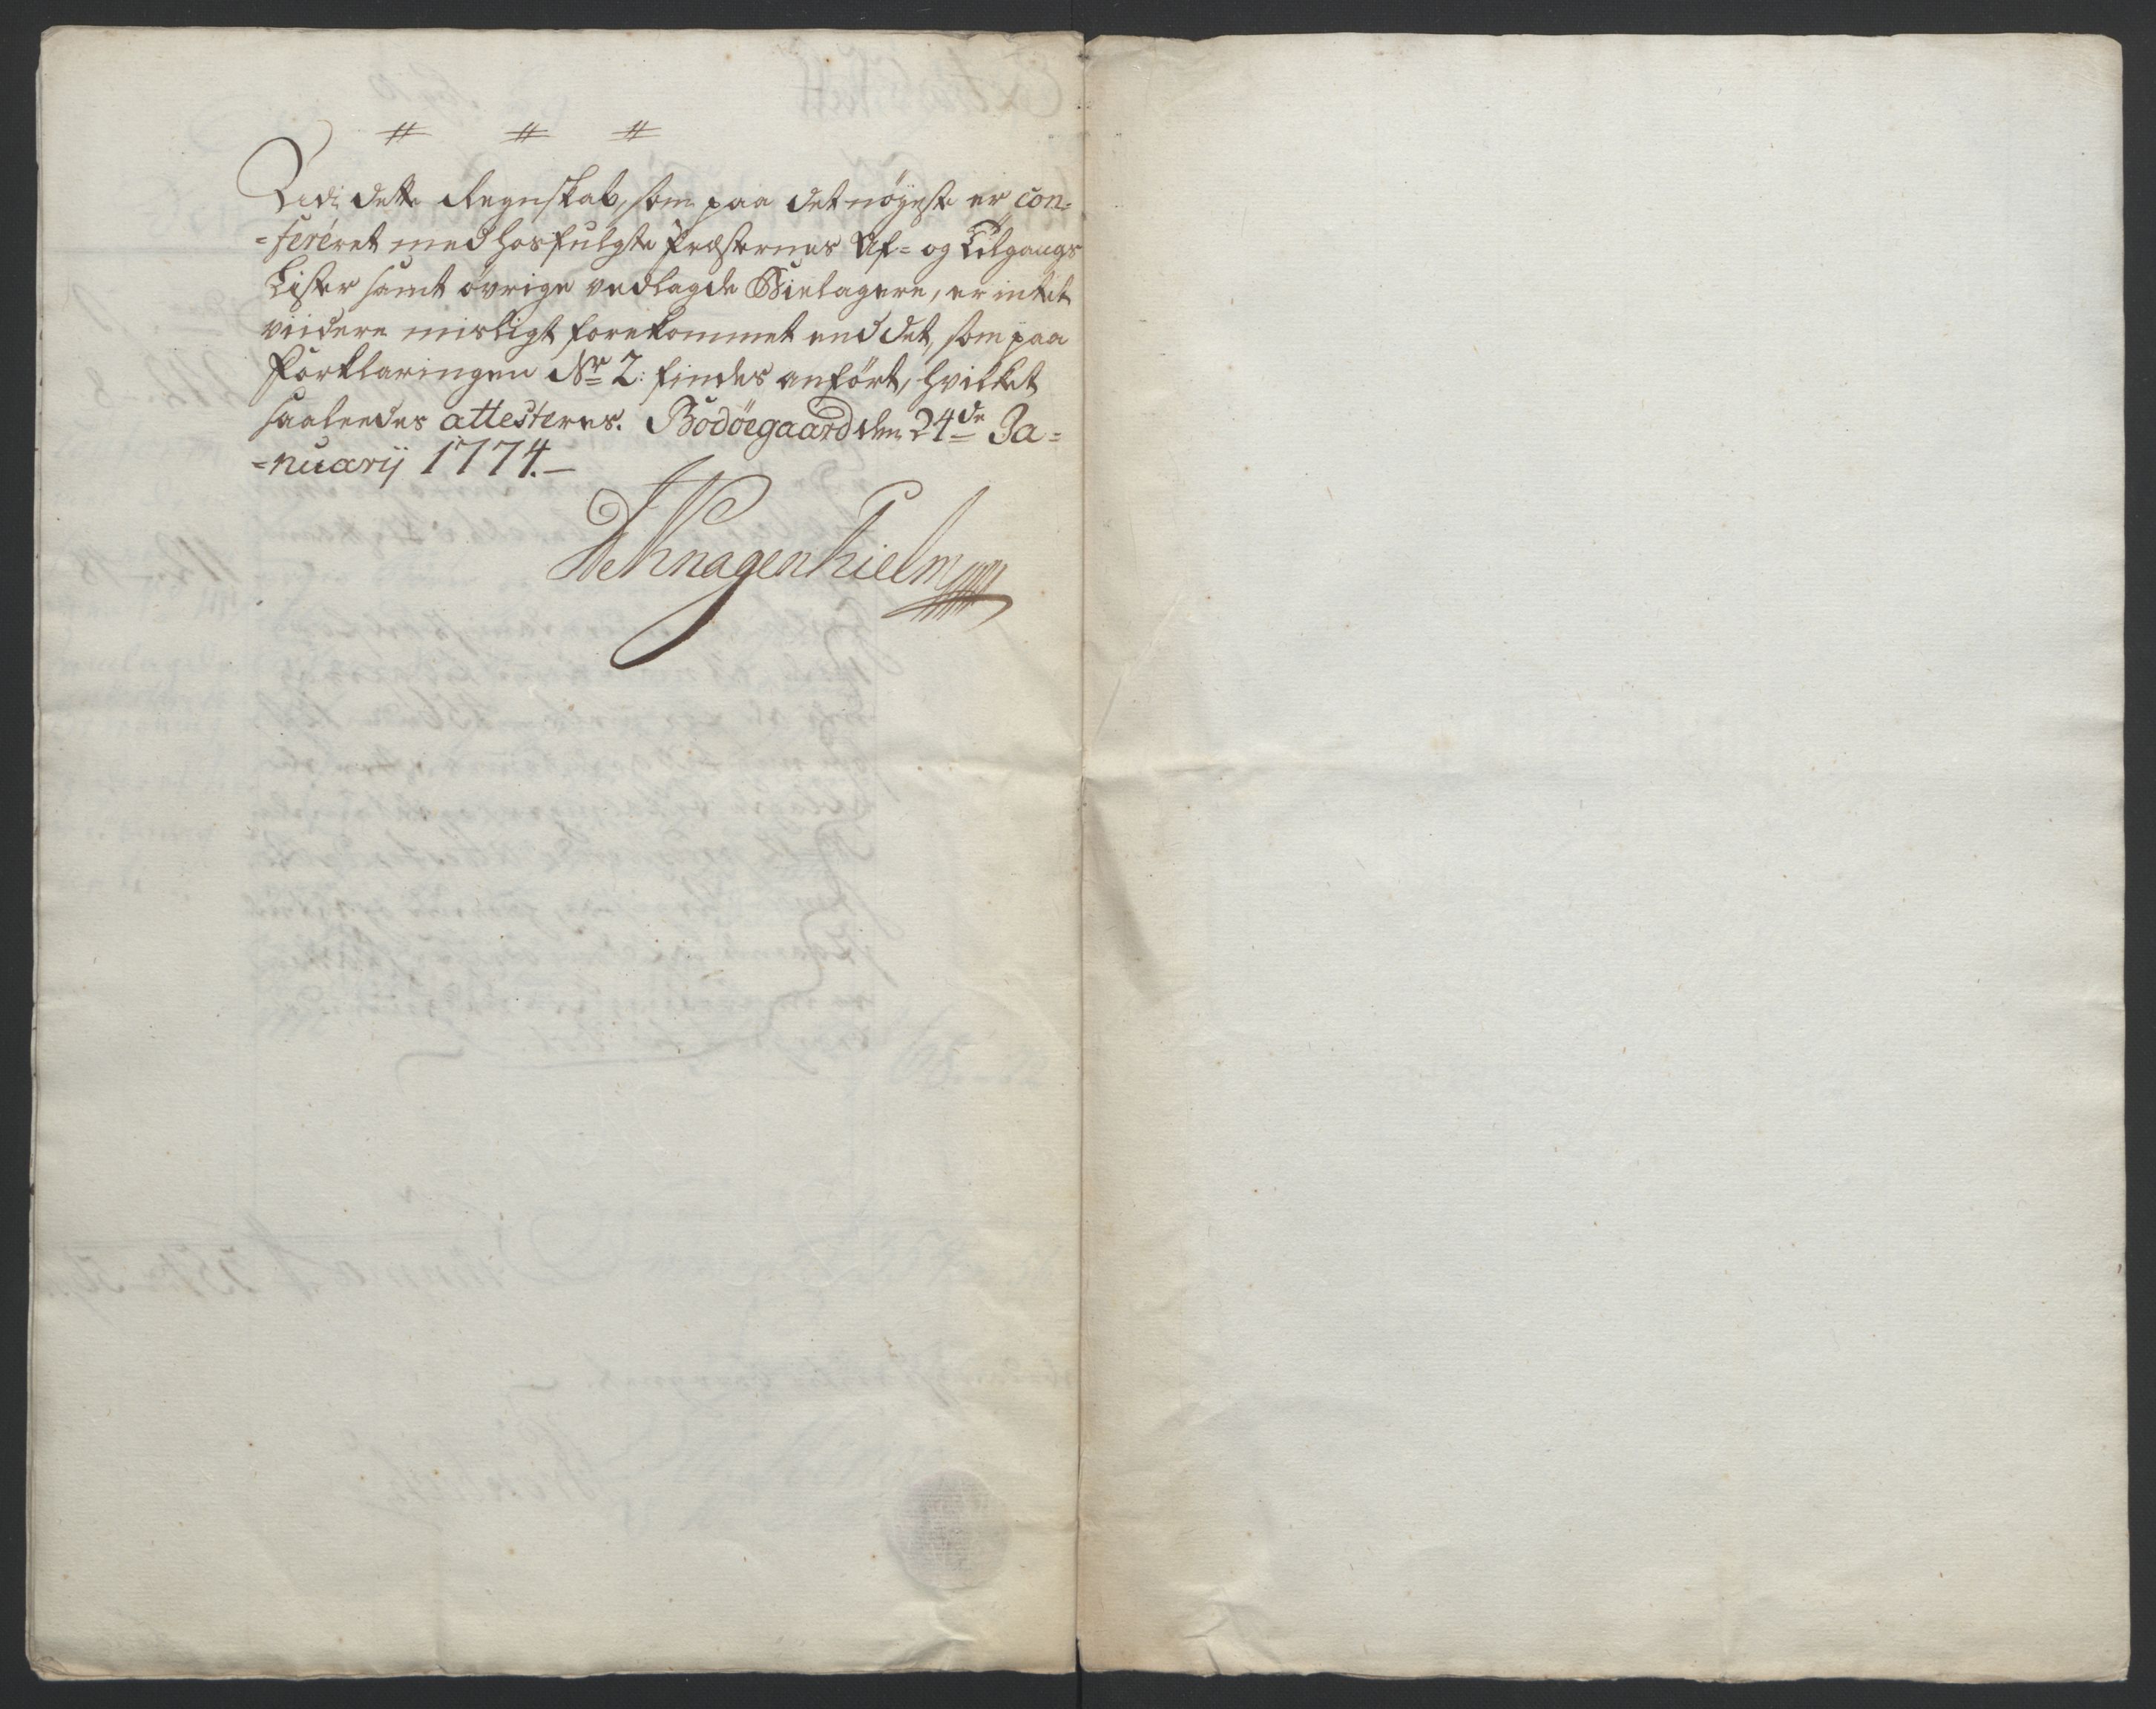 # # #
Ved dette Regnskab, som paa det nøyeste er con-
-fereret med hosfulgte Præsternes Af- og Tilgangs
Lister samt øvrige vedlagde Bielagere, er intet
viidere misligt forekommet end det, som paa
Forklaringen No 2: findes anført, hvilket
saaleedes attesteres. Bodøegaard den 24de Ja-
-nuarij 1774.-
Knagenhielm